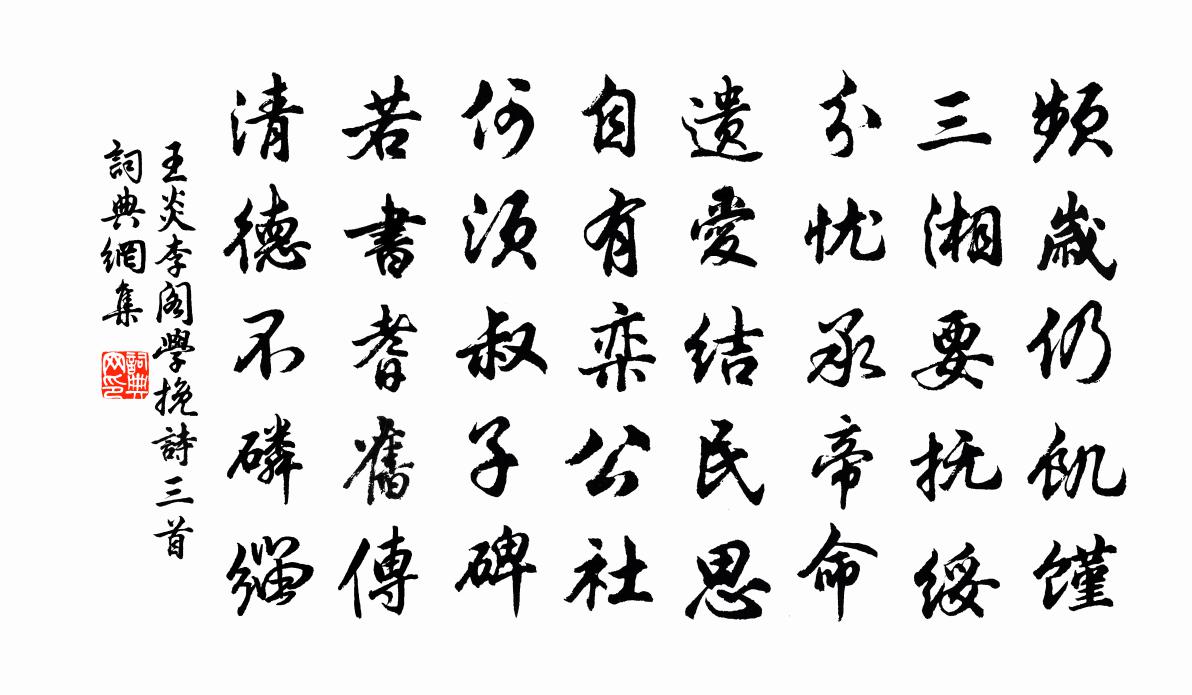 頻歲仍飢饉
三湘要抚綏
分忧承帝命
遗愛結民思
自有栾公社
何须叔子碑
若書耆舊傳
清德不磷缁
王炎李阁學挽詩三首
詞典網集
詞典网印